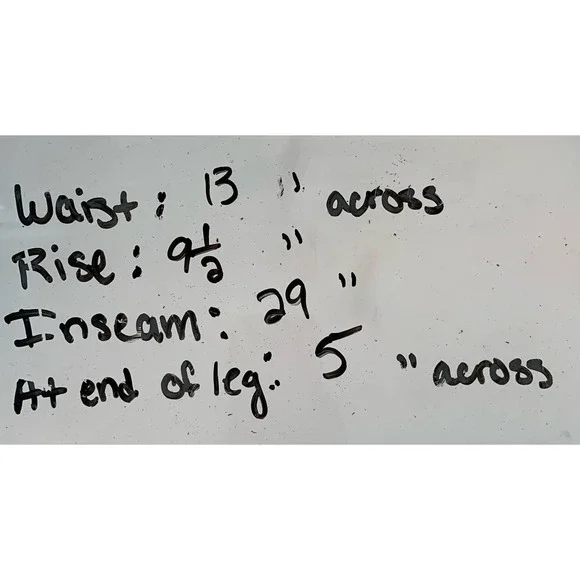 Waist: 13 " across
Rise: 9 1/2 "
Inseam: 29 "
At end of leg: 5 " across